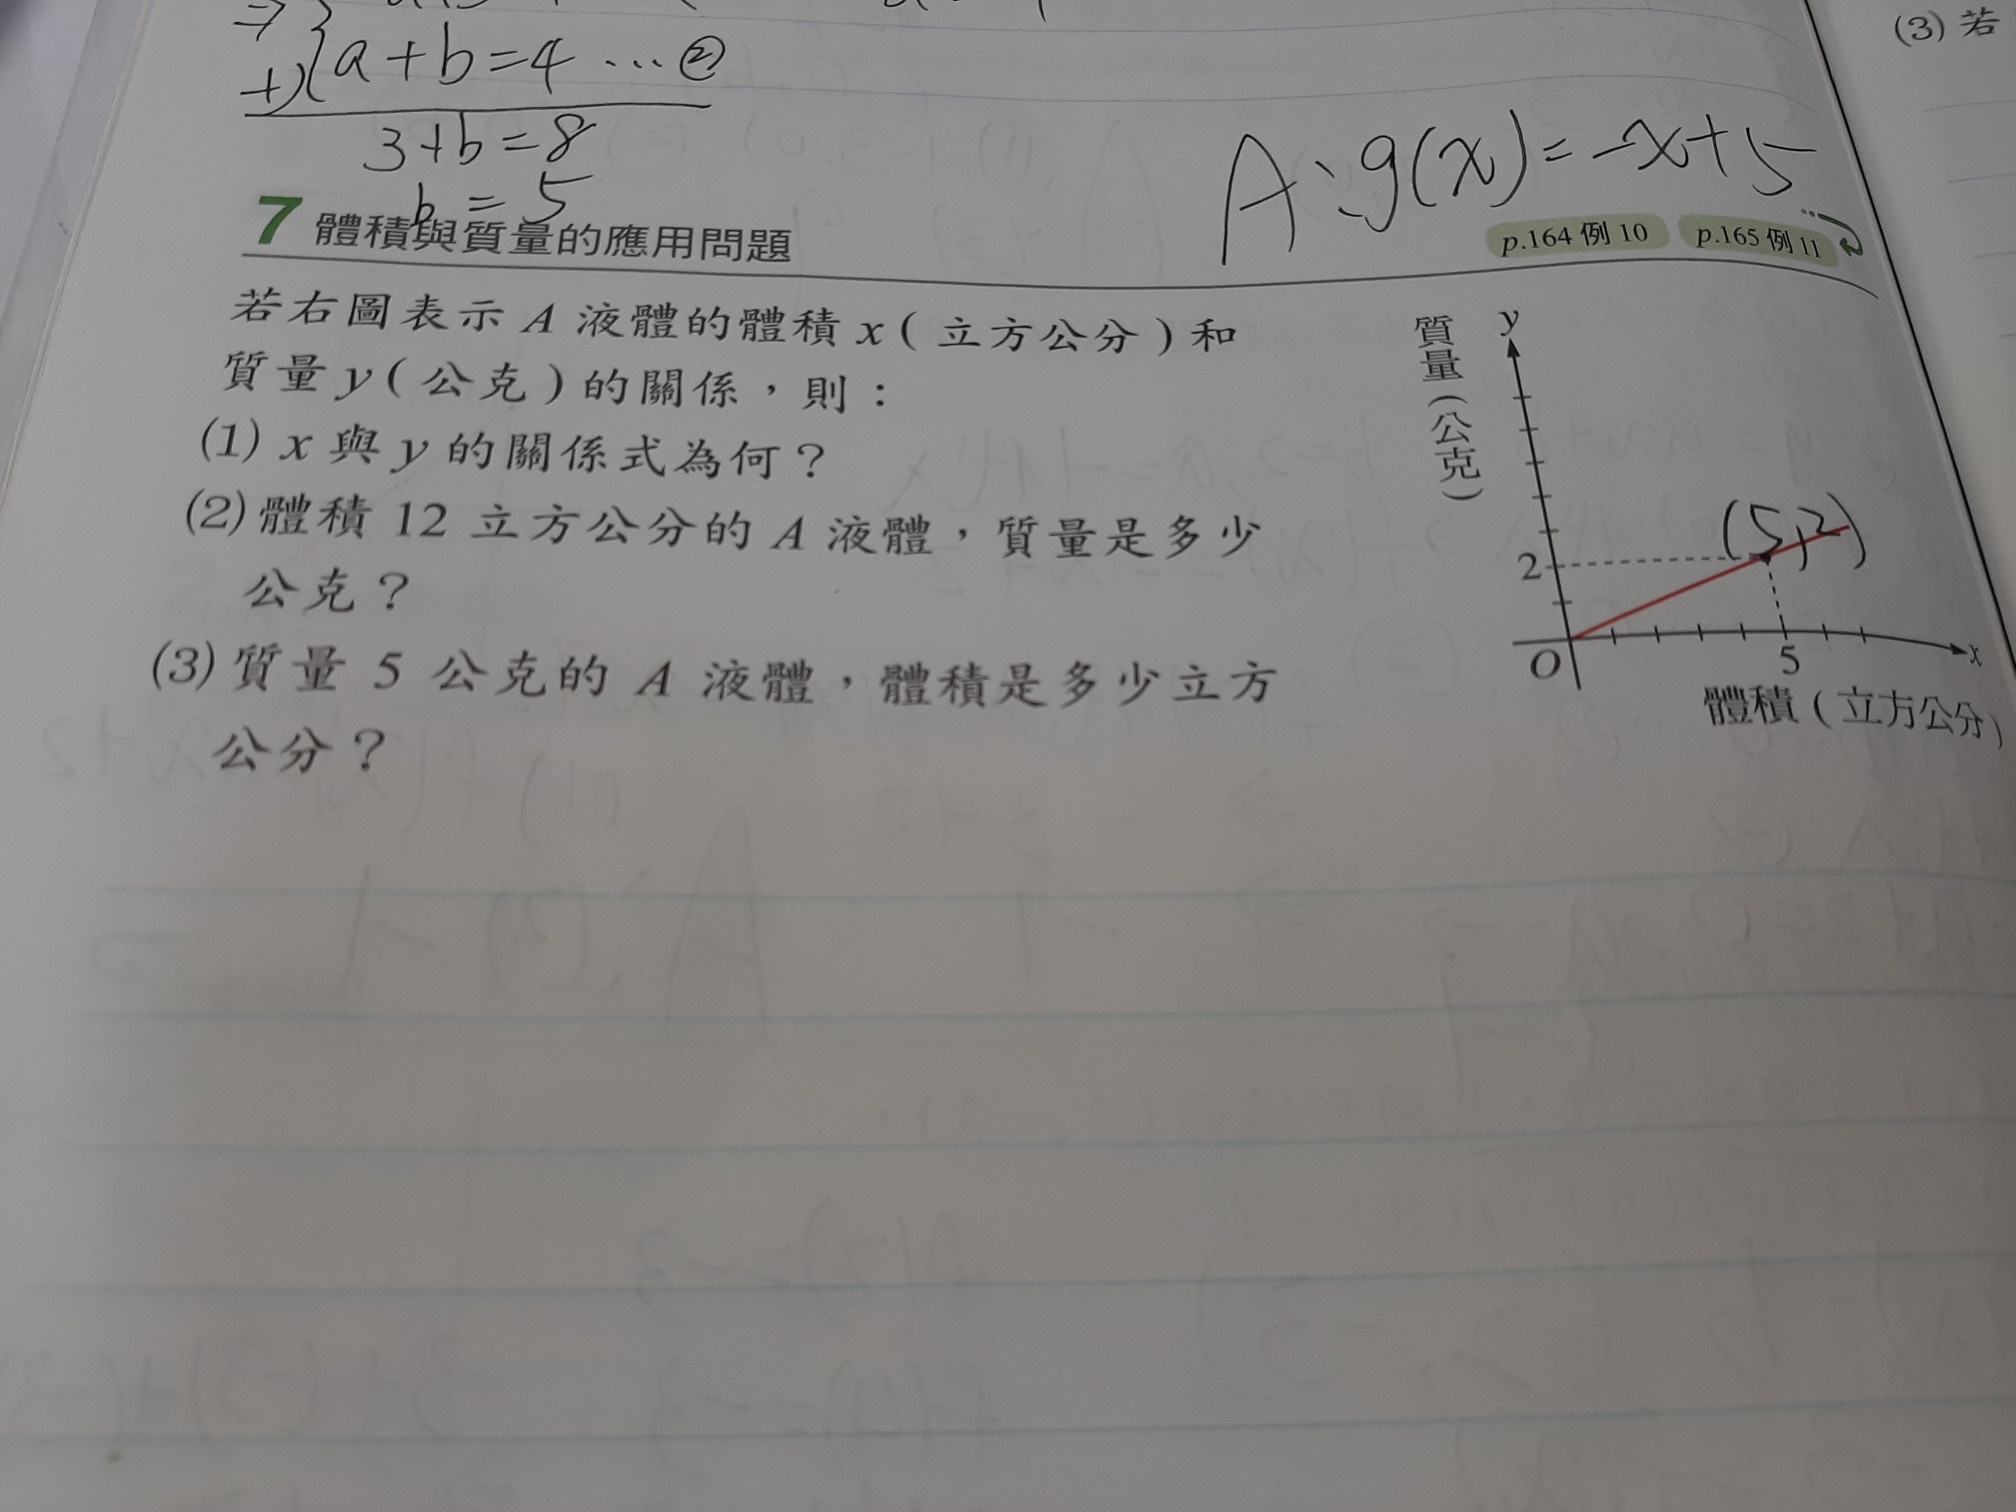 (3) 若
⇒
+) { a+b=4 …②
3+b=8
b=5
A:g(x)=-x+5
7 體積與質量的應用問題
p.164 例 10 p.165 例 11
若右圖表示 A 液體的體積 x ( 立方公分 ) 和
質量 y ( 公克 ) 的關係，則：
(1) x 與 y 的關係式為何？
(2) 體積 12 立方公分的 A 液體，質量是多少
公克？
(3) 質量 5 公克的 A 液體，體積是多少立方
公分？
質量(公克)
y
(5,2)
2
O
5
x
體積 ( 立方公分 )